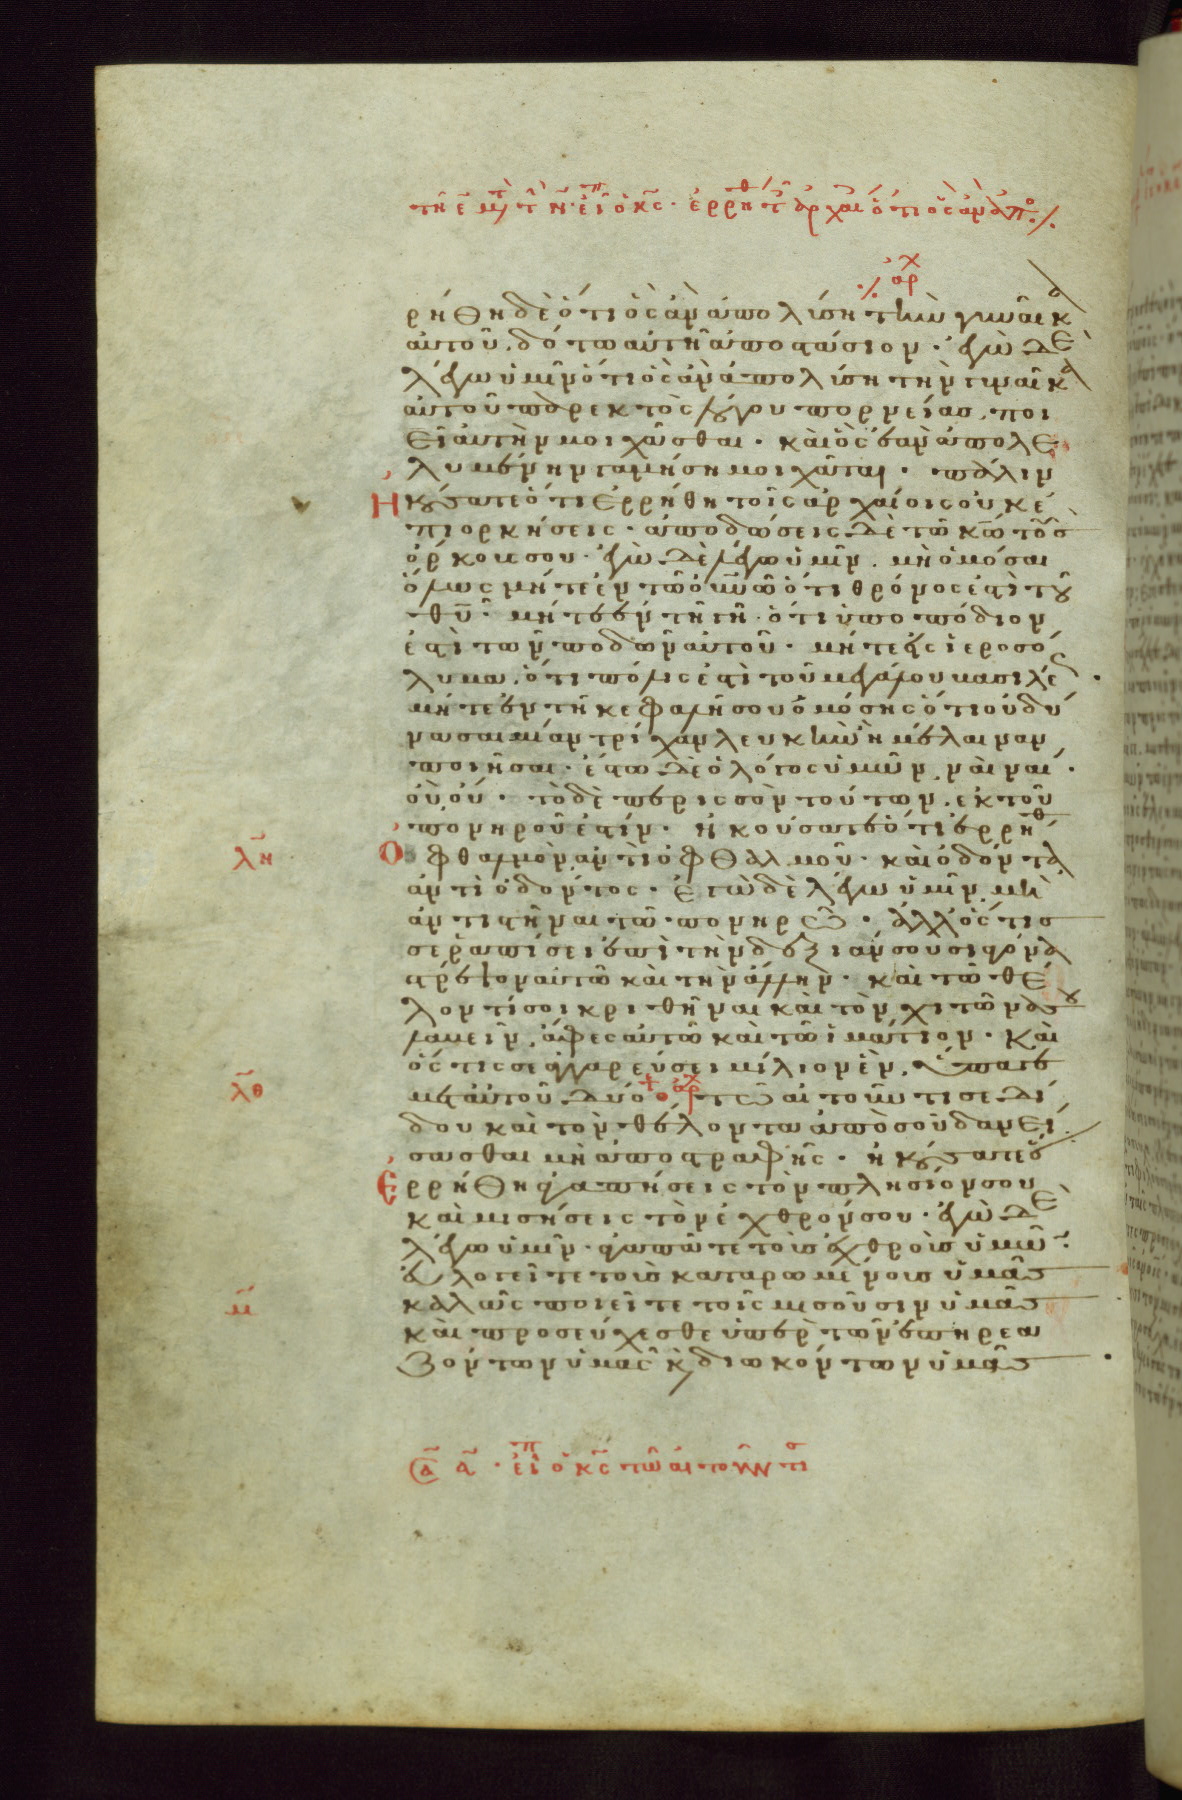 τῆ ε̄ μτ τ ν̄ · εἶπ ὁ κ̄ς · ἐρρηθ τ ἀρχαι ὅτι ὃς ἂν ἀπο ⁒
⁒ ἀρχ
ρήθη δὲ ὅτι ὃς ἂν ἀπολύση τὴν γυναῖκα
αὐτοῦ, δότω αὐτῆ ἀποστάσιον · ἐγὼ δὲ
λέγω ὑμῖν ὅτι ὃς ἂν ἀπολύση τὴν γυναῖκα
αὐτοῦ παρεκτὸς λόγου πορνείας, ποι
εῖ αὐτὴν μοιχᾶσθαι · καὶ ὃς ἐὰν ἀπολε
λυμένην γαμήση μοιχᾶται · πάλιν
Ἠκούσατε ὅτι ἐρρήθη τοῖς ἀρχαίοις οὐκ ἐ
πιορκήσεις · ἀποδώσεις δὲ τῶ κ̄ω τοὺς
ὅρκους σου · ἐγὼ δὲ λέγω ὑμῖν · μὴ ὀμόσαι
ὅλως μήτε ἐν τῶ οὐ̄νῶ ὅτι θρόνος ἐστὶ τοῦ
θ̄υ · μήτε ἐν τῆ γῆ · ὅτι ὑποπόδιον
ἐστὶ τῶν ποδῶν αὐτοῦ · μήτε εἰς ἱεροσό
λυμα, ὅτι πόλις ἐστὶ τοῦ μεγάλου βασιλέως ·
μήτε ἐν τῆ κεφαλῆ σου ὀμόσης ὅτι οὐ δύ
νασαι μίαν τρίχαν λευκὴν ἢ μέλαιναν
ποιῆσαι · ἔστω δὲ ὁ λόγος ὑμῶν, ναὶ ναί ·
οὒ οὔ · τὸ δὲ περισσὸν τούτων, ἐκ τοῦ
πονηροῦ ἐστίν · ἠκούσατε ὅτι ἐρρήθ
λ̄η Ὀφθαλμὸν ἀντὶ ὀφθαλμοῦ · καὶ ὀδόντα
ἀντὶ ὀδόντος · ἐγὼ δὲ λέγω ὑμῖν μὴ
ἀντιστῆναι τῶ πονηρῶ · ἀλλ' ὅστις
σε ῥαπίσει ἐπὶ τὴν δεξιάν σου σιαγόνα
στρέψον αὐτῶ καὶ τὴν ἄλλην · καὶ τῶ θέ
λοντί σοι κριθῆναι καὶ τὸν χιτῶνά σου
λαβεῖν, ἄφες αὐτῶ καὶ τὸ ἱμάτιον · καὶ
ὅστις σε ἀγγαρεύσει μίλιον ἕν, ὕπαγε
λ̄θ μετ' αὐτοῦ δύο ἀρχ τῶ αἰτοῦντι σε δί
δου καὶ τὸν θέλοντα ἀπὸ σοῦ δανεί
σασθαι μὴ ἀποστραφῆς · ἠκούσατε ὅτι
Ἐρρήθη ἀγαπήσεις τὸν πλησίον σου
καὶ μισήσεις τὸν ἐχθρόν σου · ἐγὼ δὲ
λέγω ὑμῖν · ἀγαπᾶτε τοὺς ἐχθροὺς ὑμῶν ·
εὐλογεῖτε τοὺς καταρωμένους ὑμᾶς
μ̄ καλῶς ποιεῖτε τοῖς μισοῦσιν ὑμᾶς
καὶ προσεύχεσθε ὑπὲρ τῶν ἐπηρεα
ζόντων ὑμᾶς κ διωκόντων ὑμᾶς
Σα ᾱ · εἶπ ὁ κ̄ς τῶ αἰτοῦντι σ